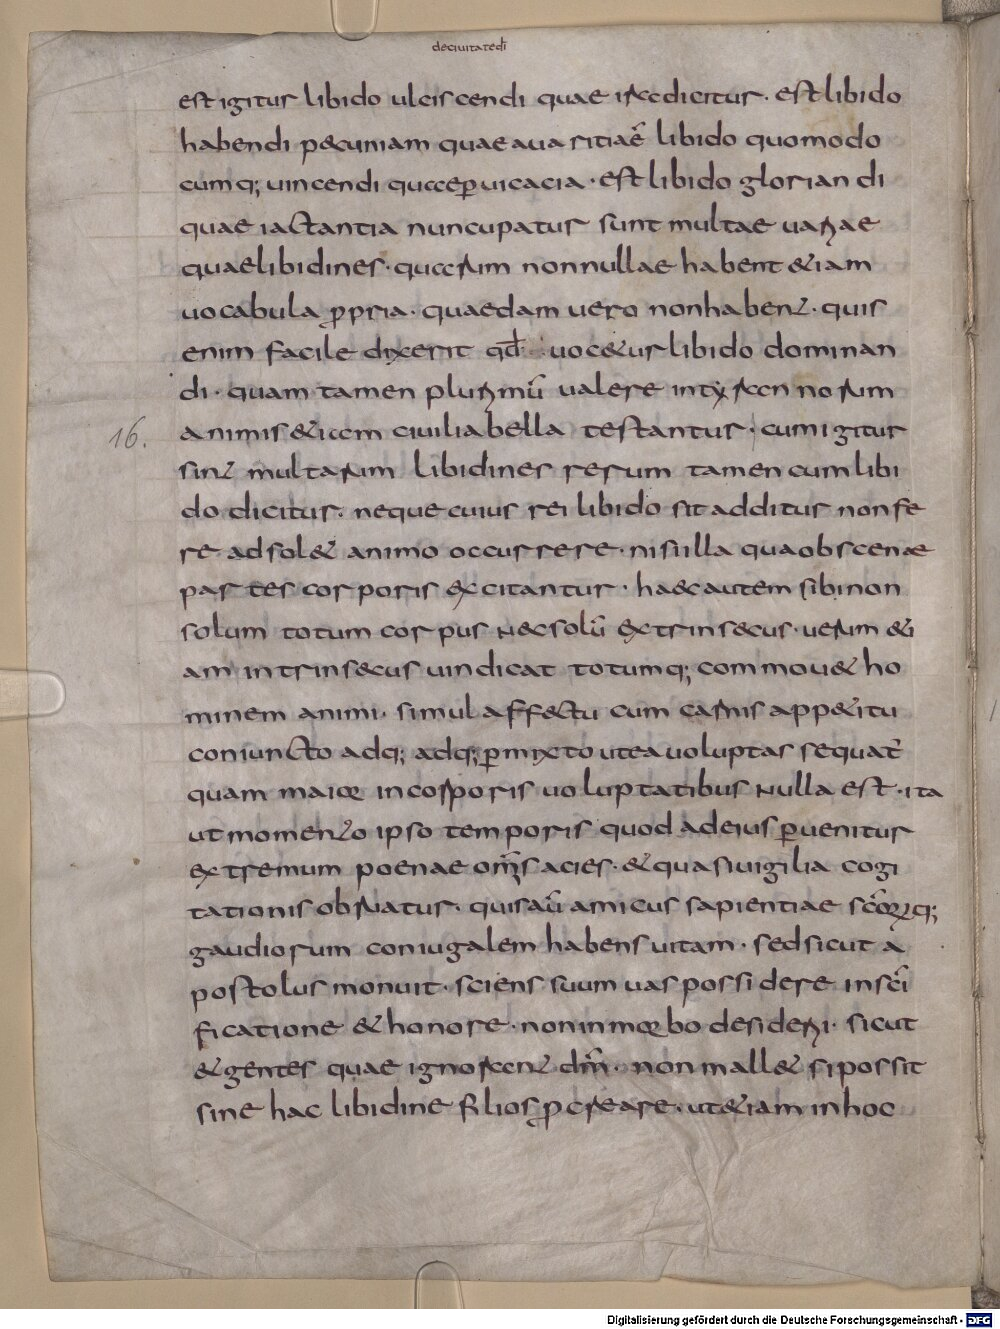 deciuitatedī
est igitur libido ulciscendi quae iracdicitur · est libido
habendi pecuniam quae auaritiaē libido quomodo
cumq; uincendi quae ꝑuicacia · est libido gloriandi
quae iactantia nuncupatur sunt multae uariae
quaelibidines · quarum nonnullae habent &iam
uocabula ꝓpria · quaedam uero nonhabent · quis
enim facile dixerit qđ uoc&ur libido dominan
di · quam tamen plurimū ualere in tyrannorum
animis &iam ciuilia bella testantur · cum igitur
sint multarum libidines rerum tamen cum libi
do dicitur · neque cuius rei libido sit additur non fe
re adsol& animo occurrere · nisi illa qua obscenae
partes corporis excitantur · haec autem sibi non
solum totum corpus nec solū extrinsecus · uerum &i
am intrinsecus uindicat totumq; commou& ho
minem animi · simul affectu cum carnis app&itu
coniuncto adq; adq; ꝑmixto ut ea uoluptas sequat̄
quam maior in corporis uoluptatibus nulla est · ita
ut momento ipso temporis quod ad eius ꝑuenitur
extremum poenae om̄s acies · & quasi uigilia cogi
tationis obruatur · quis aū amicus sapientiae sc̄orq;
gaudiorum coniugalem habens uitam · sed sicut a
postolus monuit · sciens suum uas possidere in sc̄i
ficatione & honore · non in morbo desiderii · sicut
& gentes quae ignorant dm̄ · non mall& si possit
sine hac libidine filios ꝓcreare · ut &iam in hoc
16.
Digitalisierung gefördert durch die Deutsche Forschungsgemeinschaft - DFG